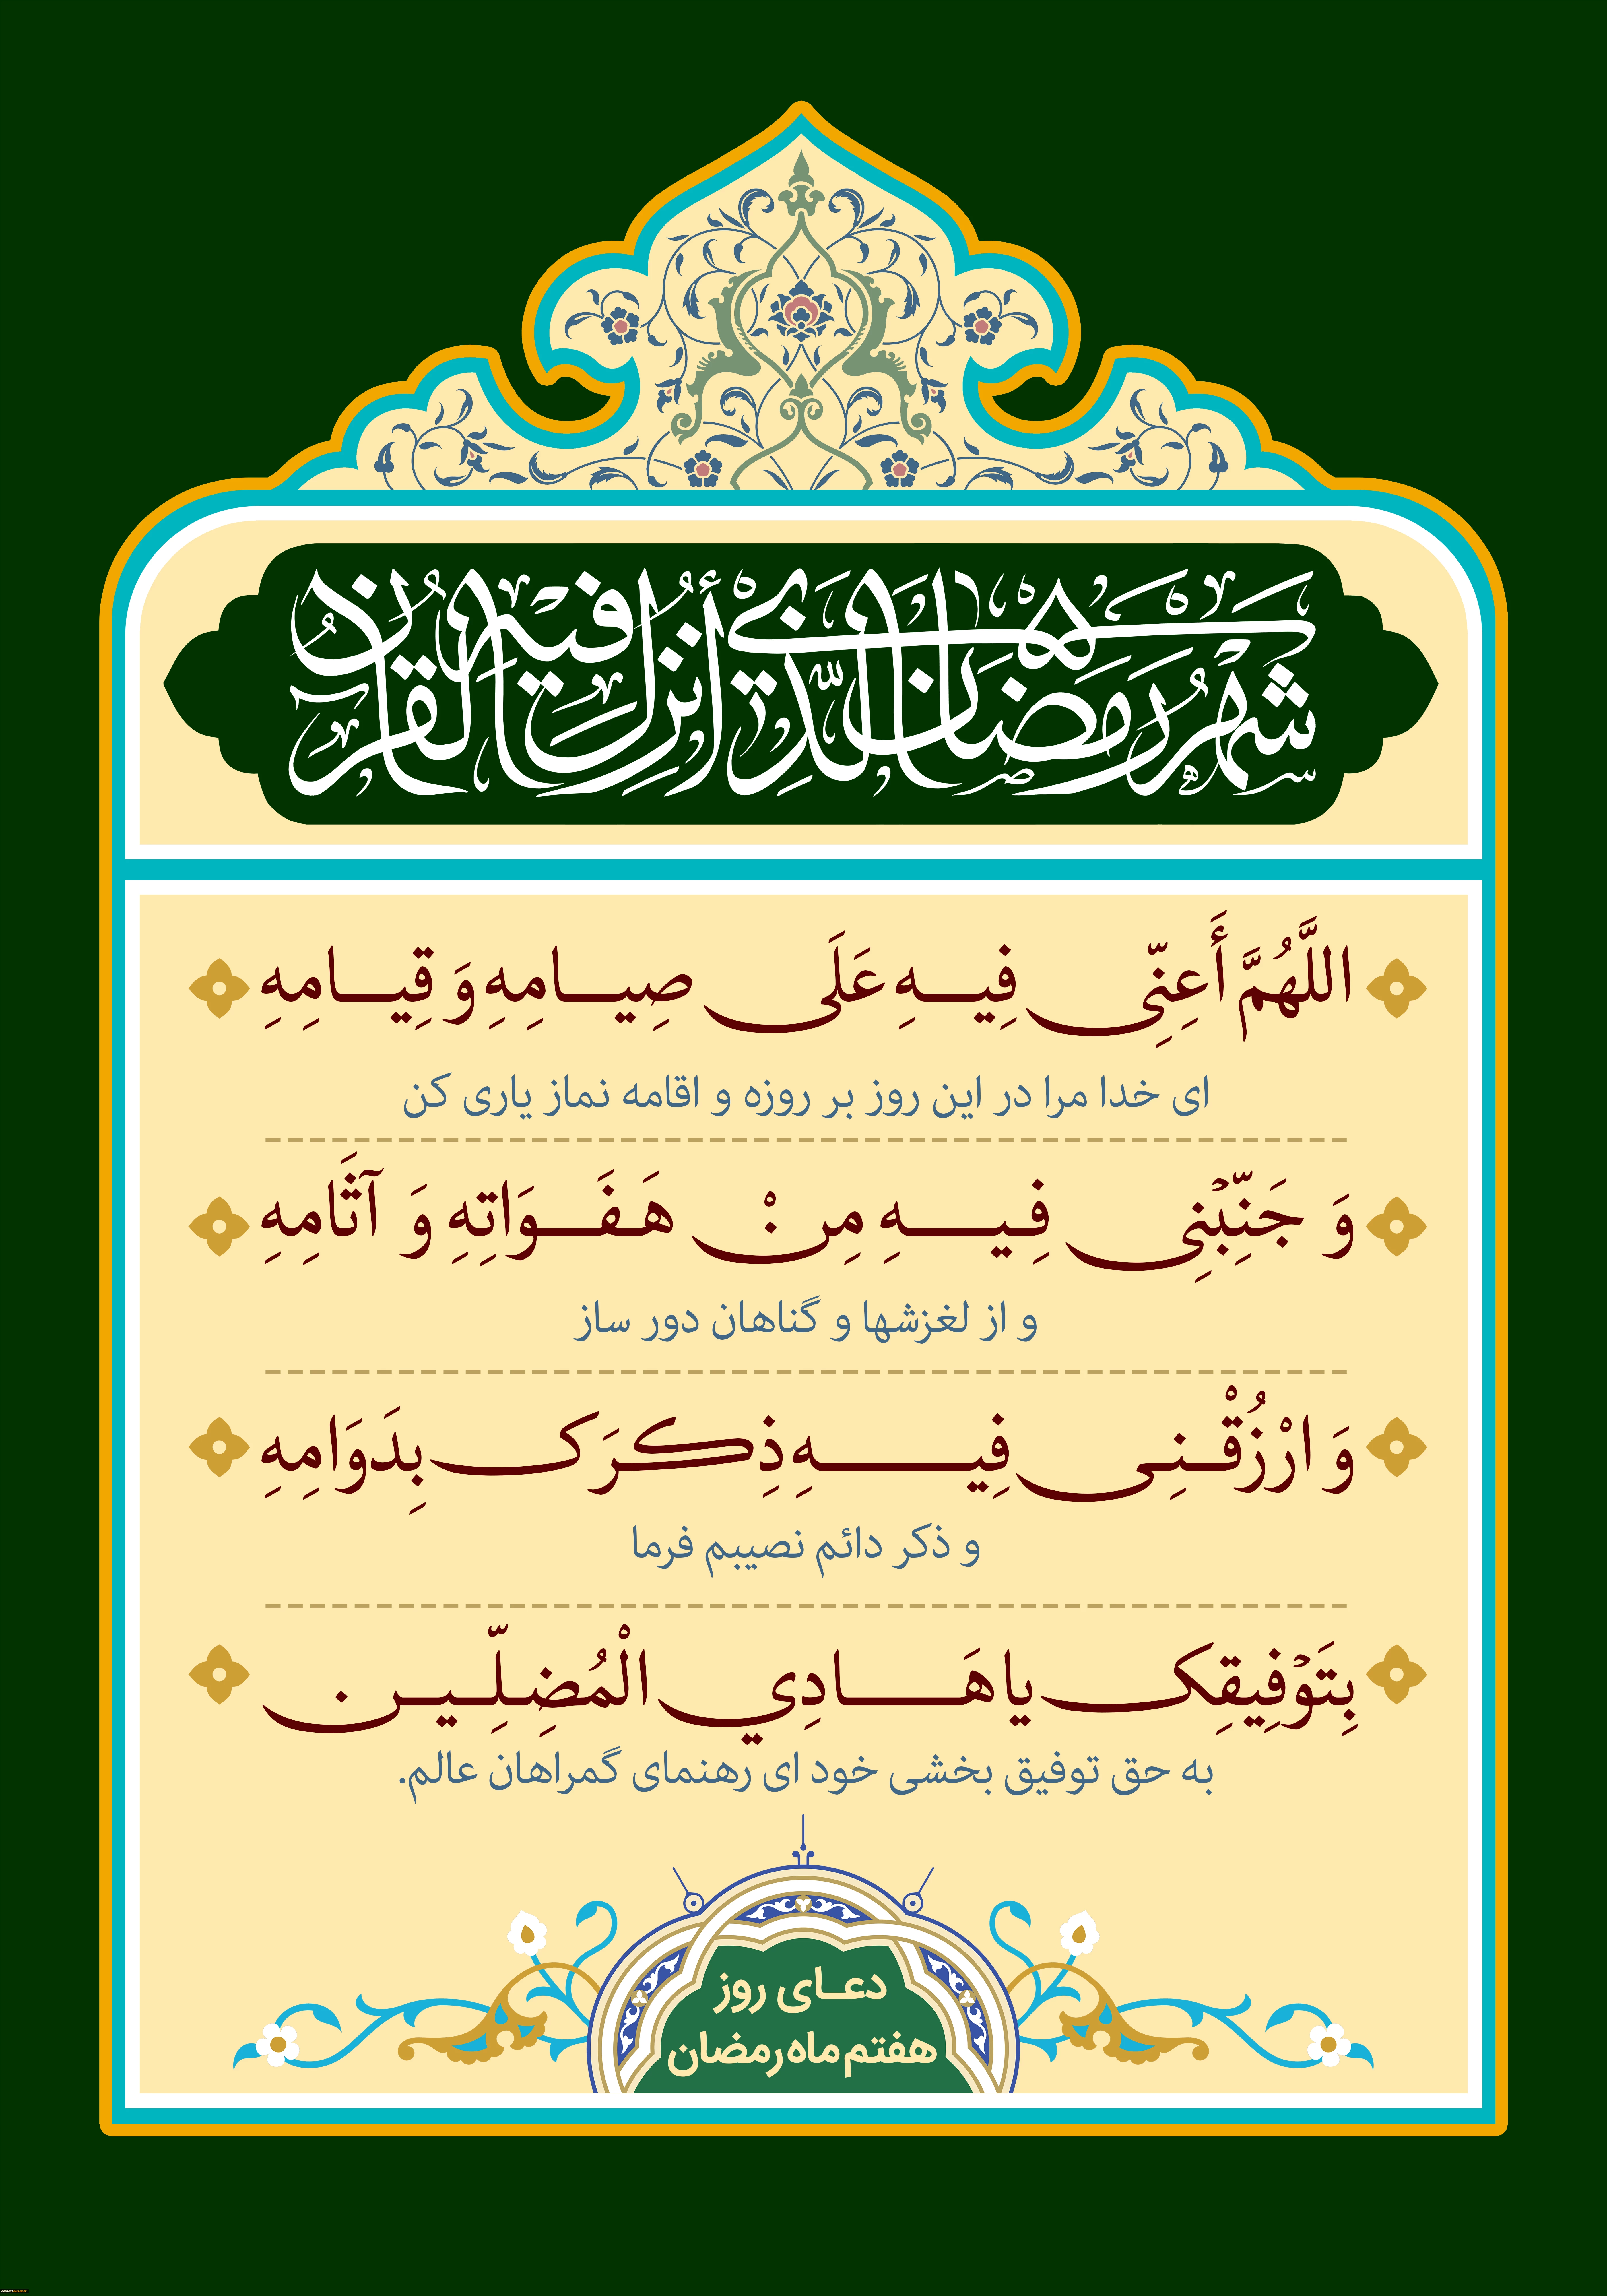 شهر رمضان الّذي أُنزل فيه القرآن
اللَّهُمَّ أَعِنِّي فِيهِ عَلَى صِيَامِهِ وَ قِيَامِهِ
ای خدا مرا در این روز بر روزه و اقامه نماز یاری کن
وَ جَنِّبْنِي فِيهِ مِنْ هَفَوَاتِهِ وَ آثَامِهِ
و از لغزشها و گناهان دور ساز
وَ ارْزُقْنِي فِيهِ ذِكرَكَ بِدَوَامِهِ
و ذکر دائم نصیبم فرما
بِتَوْفِيقِكَ يا هَادِي الْمُضِلِّينَ
به حق توفیق بخشی خود ای رهنمای گمراهان عالم.
دعای روز
هفتم ماه رمضان